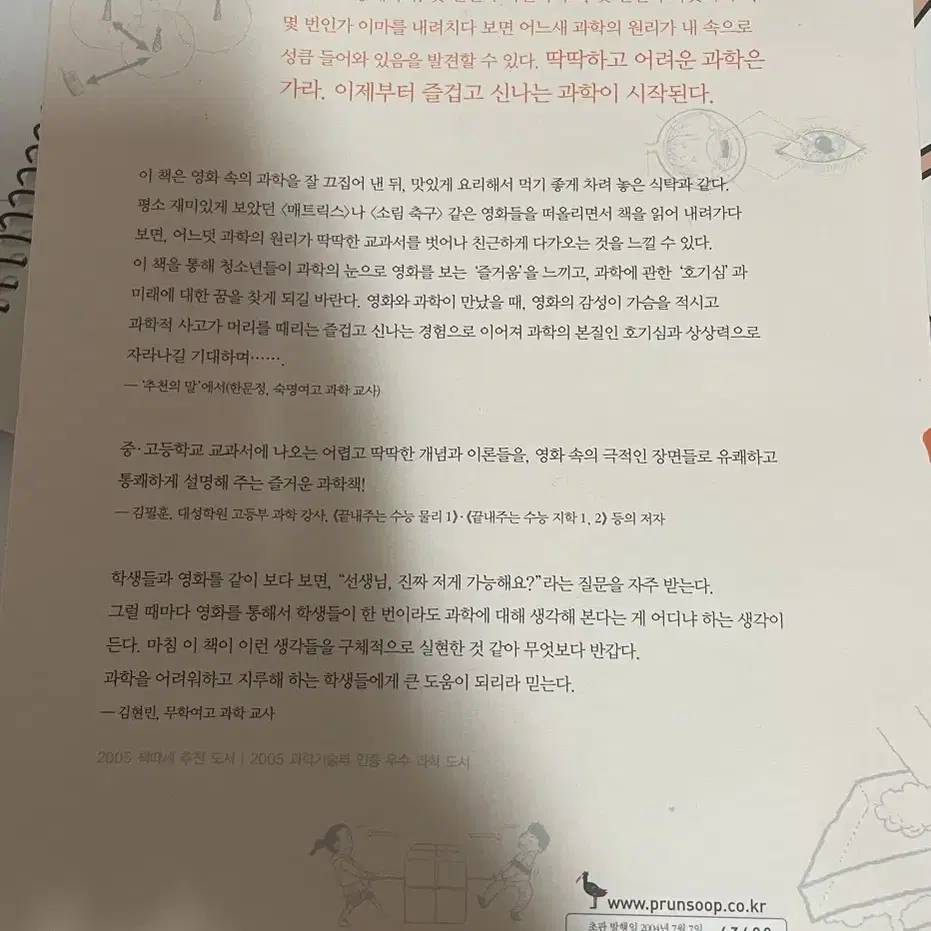 몇 번인가 이마를 내려치다 보면 어느새 과학의 원리가 내 속으로
성큼 들어와 있음을 발견할 수 있다. 딱딱하고 어려운 과학은
가라. 이제부터 즐겁고 신나는 과학이 시작된다.
이 책은 영화 속의 과학을 잘 끄집어 낸 뒤, 맛있게 요리해서 먹기 좋게 차려 놓은 식탁과 같다.
평소 재미있게 보았던 〈매트릭스〉나 〈소림 축구〉 같은 영화들을 떠올리면서 책을 읽어 내려가다
보면, 어느덧 과학의 원리가 딱딱한 교과서를 벗어나 친근하게 다가오는 것을 느낄 수 있다.
이 책을 통해 청소년들이 과학의 눈으로 영화를 보는 ‘즐거움’을 느끼고, 과학에 관한 ‘호기심’과
미래에 대한 꿈을 찾게 되길 바란다. 영화와 과학이 만났을 때, 영화의 감성이 가슴을 적시고
과학적 사고가 머리를 때리는 즐겁고 신나는 경험으로 이어져 과학의 본질인 호기심과 상상력으로
자라나길 기대하며…….
— ‘추천의 말’에서(한문정, 숙명여고 과학 교사)
중·고등학교 교과서에 나오는 어렵고 딱딱한 개념과 이론들을, 영화 속의 극적인 장면들로 유쾌하고
통쾌하게 설명해 주는 즐거운 과학책!
— 김필훈, 대성학원 고등부 과학 강사, 《끝내주는 수능 물리 1》·《끝내주는 수능 지학 1, 2》 등의 저자
학생들과 영화를 같이 보다 보면, “선생님, 진짜 저게 가능해요?”라는 질문을 자주 받는다.
그럴 때마다 영화를 통해서 학생들이 한 번이라도 과학에 대해 생각해 본다는 게 어디냐 하는 생각이
든다. 마침 이 책이 이런 생각들을 구체적으로 실현한 것 같아 무엇보다 반갑다.
과학을 어려워하고 지루해 하는 학생들에게 큰 도움이 되리라 믿는다.
— 김현빈, 무학여고 과학 교사
2005 책따세 추천 도서 | 2005 과학기술부 인증 우수 과학 도서
www.prunsoop.co.kr
초판 발행일 2004년 7월 7일